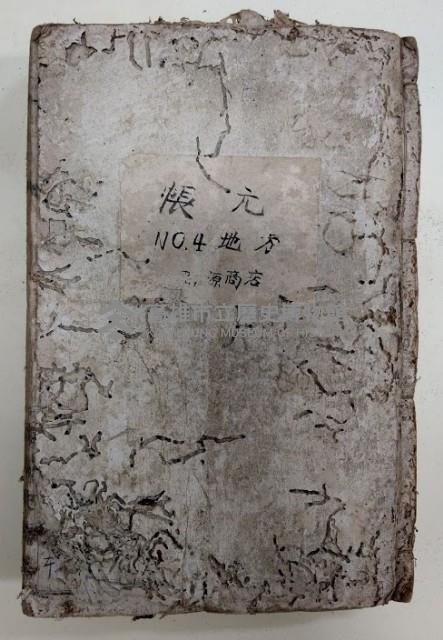 帳元
NO.4地方
源商店
高雄市立歷史博物館
KAOHSIUNG MUSEUM OF HISTORY